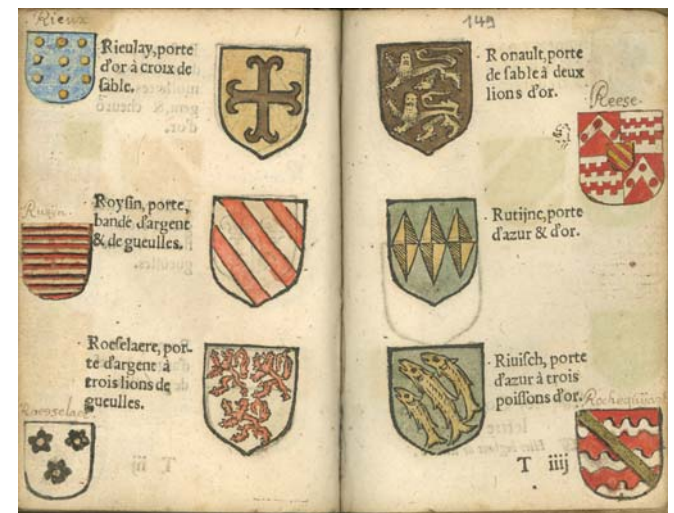 Rieux
Rieulay, porte
d'or à croix de
ſable.
Ruſin.
Royſin, porte,
bandé d'argent
& de gueulles.
Roeſelaere, por-
te d'argent à
trois lions de
gueulles.
Roesselaer
149
Ronault, porte
de ſable à deux
lions d'or.
Reese.
Rutijne, porte
d'azur & d'or.
Riuiſch, porte
d'azur à trois
poiſſons d'or.
T iiij